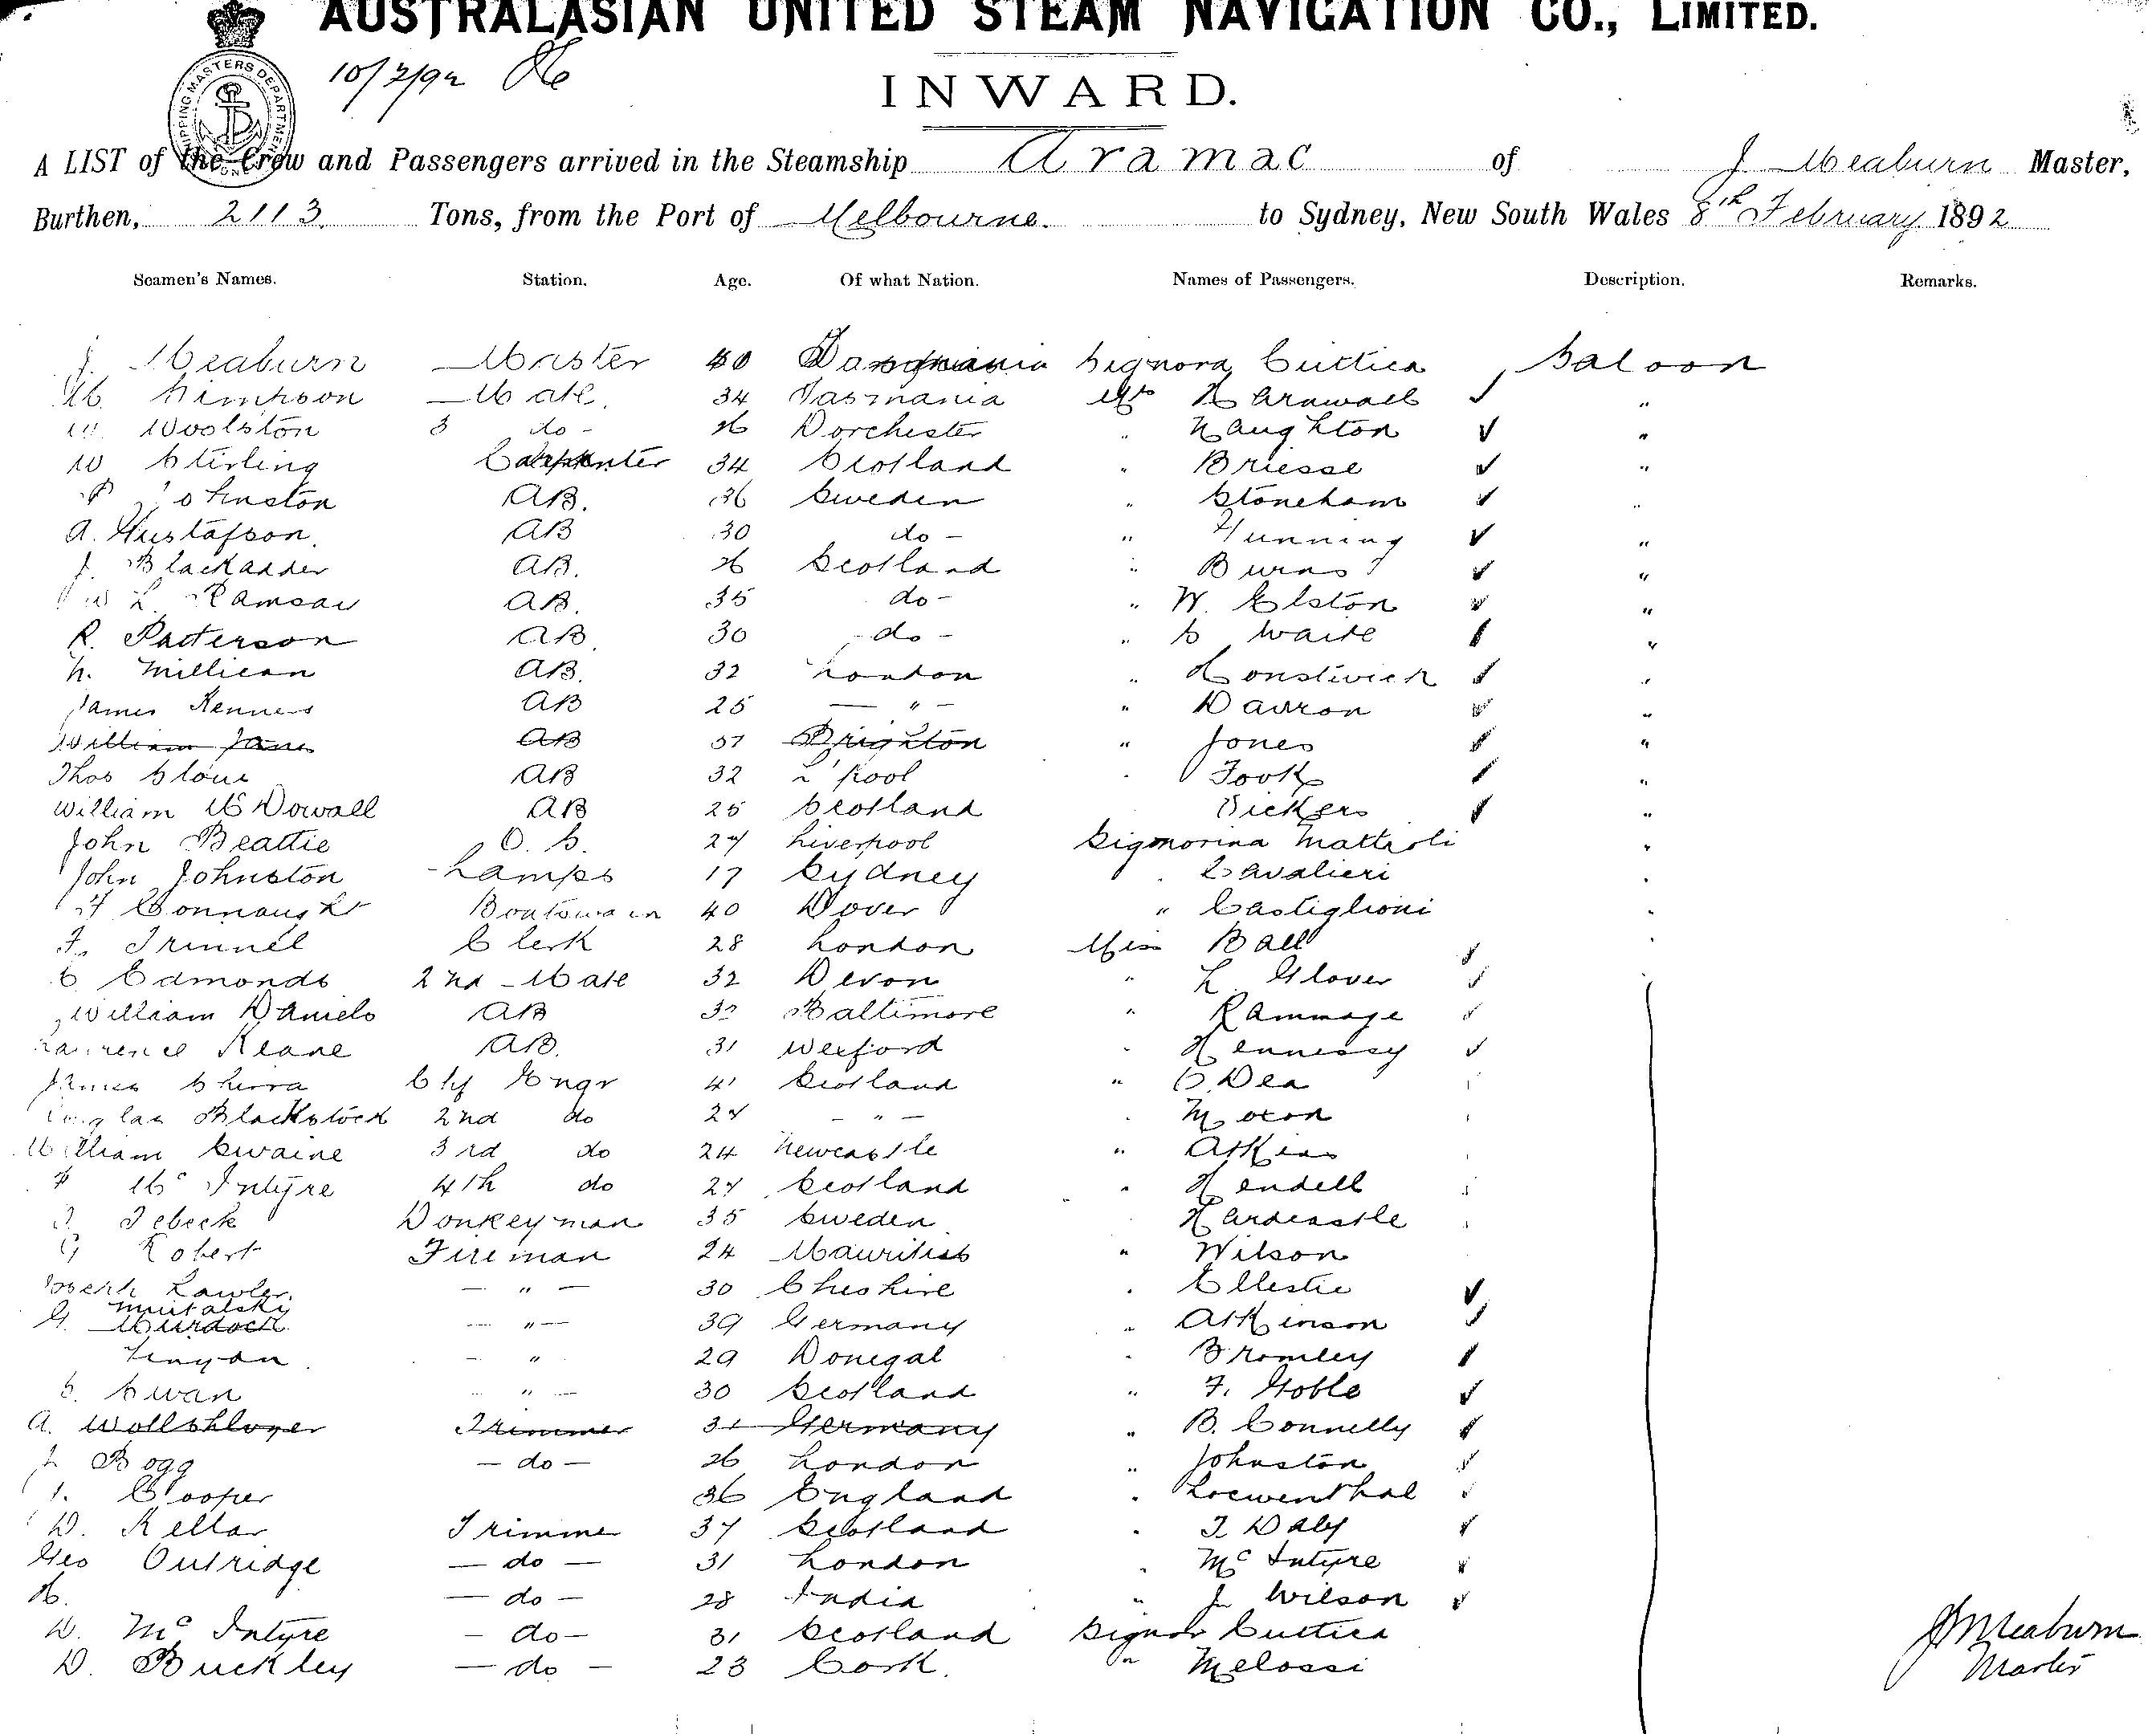 AUSTRALASIAN UNITED STEAM NAVIGATION CO., LIMITED.
10/2/92
INWARD.
SHIPPING MASTERS DEPARTMENT
A LIST of the Crew and Passengers arrived in the Steamship Aramac of J Meaburn Master,
Burthen, 2113 Tons, from the Port of Melbourne. to Sydney, New South Wales 8th February 1892
Seamen's Names. Station. Age. Of what Nation. Names of Passengers. Description. Remarks.
J. Meaburn Master 40 Signora Cuttica Saloon
Simpson Mate 34 Tasmania Carnwall "
W. Woolston 3 do - 26 Dorchester " Naughton "
W Stirling Carpenter 34 Scotland " Briesse "
P Johnston AB. 36 Sweden " Stoneham "
A. Gustafson. AB 30 do - " Gunning "
J. Blackadder AB. 26 Scotland " Burns "
W L. Ramsay AB. 35 do - " W. Elston "
R. Patterson AB 30 do - " S Waite "
H. Millican AB. 32 London " "
James AB 25 — " — " "
William Jane AB 57 Brighton " Jones "
Thos AB 32 L'pool " Took "
William McDowall AB 25 Scotland Vickers "
John Beattie O. S. 27 Liverpool Signorina Mattioli "
John Johnston Lamps 17 Sydney " Cavalieri "
Connaught Boatswain 40 Dover " Castiglioni "
F. Trinnel Clerk 28 London Miss Ball "
C Edmonds 2nd Mate 32 Devon " L. Glover
William Daniels AB Baltimore " Rammage
Lawrence Keane AB. 31 Wexford " Hennessy
James Shirra Chf Engr 41 Scotland " O'Dea
Douglas Blackstock 2nd do 27 — " — " Moxon
William Swaine 3rd do 24 Newcastle " Atkins
McIntyre 4th do 27 Scotland " Hendell
J. Tebeck Donkeyman 35 Sweden Hardcastle
G Robert Fireman 24 Mauritius " Wilson
Joseph Lawler. — " — 30 Cheshire " Ellestie
Mutalsky
G. Murdoch — " — 39 Germany " Atkinson
Tenyon. — " 29 Donegal " Bromley
S. Swan — " — 30 Scotland " F. Goble
A. Trimmer 31 Germany " B. Connelly
J. Bogg — do — 26 London " Johnston
Cooper 36 England " Loewenthal
D. Kellar Trimmer 37 Scotland " T Daly
Geo Outridge — do — 31 London " McIntyre
H. — do — 28 India " J. Wilson
D. McIntyre — do — 31 Scotland Signor Cuttica
D. Buckley — do — 23 Cork. " Melossi
J Meaburn
Master